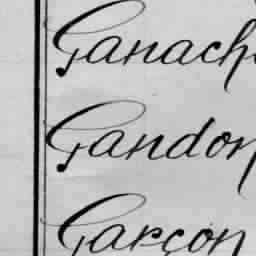 Ganach
Gandon
Garçon